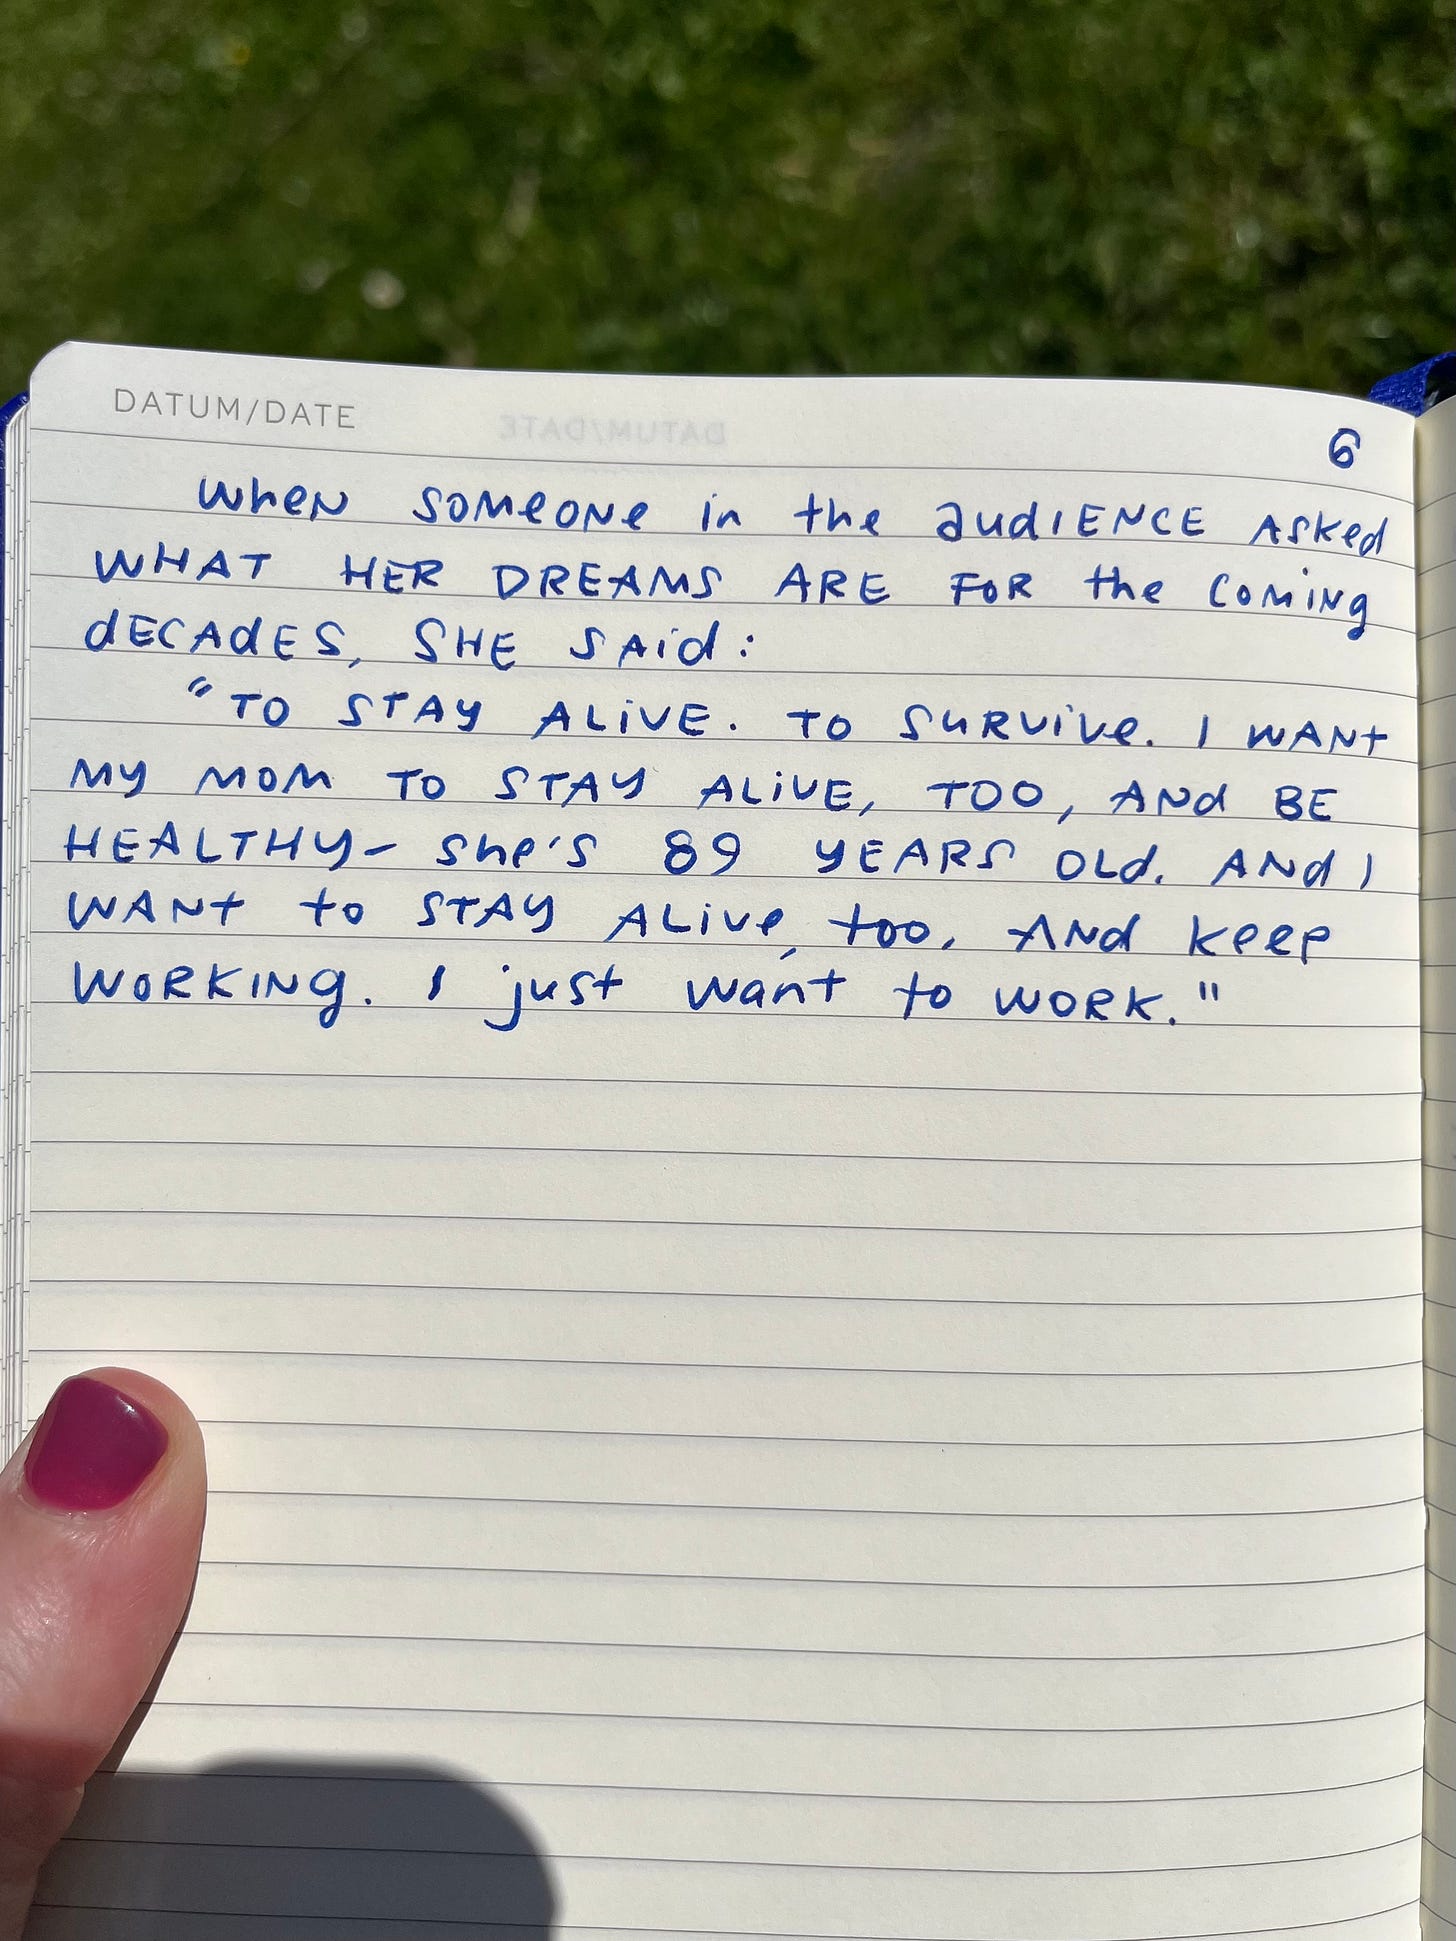 DATUM/DATE
6
When someone in the audIENCE Asked
WHAT HER DREAMS ARE FOR the coming
dECAdES, SHE SAid:
"TO STAY ALiVE. TO SURViVe. I WANt
MY MOM TO STAY ALiVE, TOO, ANd BE
HEALTHY– She's 89 YEARS OLd. ANd I
WANt to STAY ALive, too, ANd keep
WORKING. I just want to WORK."